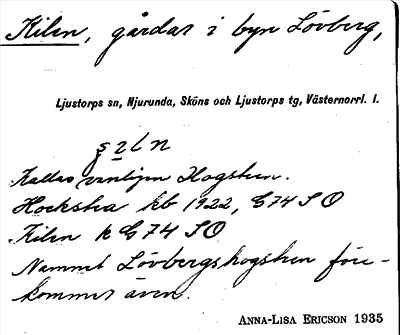 Kilen, gårdar i byn Lövberg,
Ljustorps sn, Njurunda, Sköns och Ljustorps tg, Västernorrl. l.
Kallas vanligen Hogsten.
kb 1922, G74 S O
Kilen k G 74 S O
Namnet Lövbergshogsten före-
kommer även.
ANNA-LISA ERICSON 1935